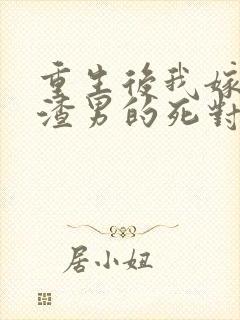 重生後我嫁
渣男的死對
居小妞